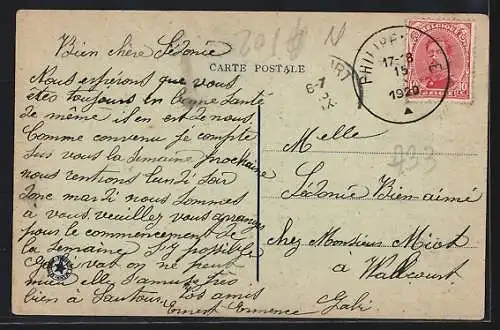 Bien chère Sidonie
Nous espérons que vous
êtes toujours en bonne santé
de même il en est de nous.
Comme convenu je compte
sur vous la semaine prochaine
nous rentrons lundi soir
donc mardi nous sommes
à vous. veuillez vous arranger
pour le commencement de
la semaine si possible
Gabi va on ne peut
mieux elle s'amuse très
bien à Sautour. Vos amis
Ernest Ermence Gabi
CARTE POSTALE
PHILIPPE
17-8
15
1920
6-7
IX
BELGIQUE
10 10
BELGIE
Melle
Sidonie Bien-aimé
chez Monsieur Miot
à Walcourt
A93